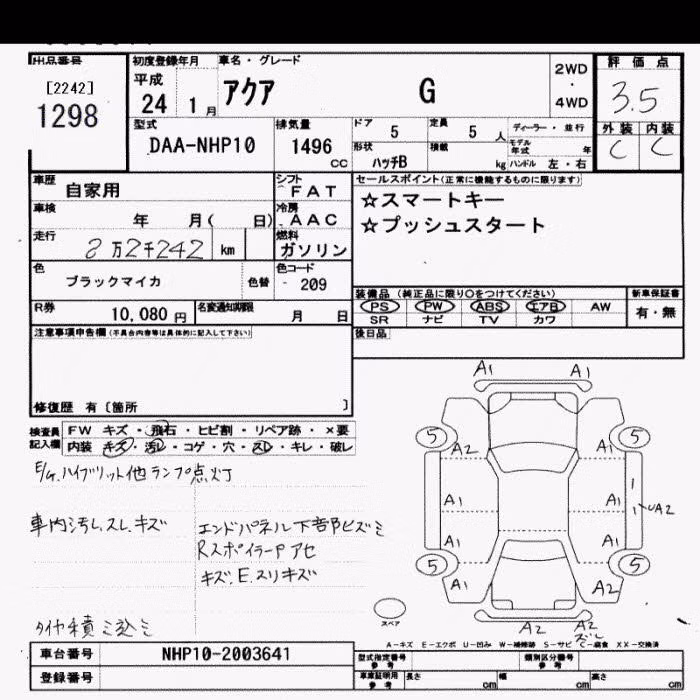 出品番号
[2242]
1298
初度登録年月
平成
24 1月
車名・グレード
アクア G
2WD
・
4WD
評価点
3.5
外装 内装
C C
型式
DAA-NHP10
排気量
1496
cc
ドア
5
定員
5 人
ディーラー・並行
形状
ハッチB
積載
kg
モデル年式
年
ハンドル 左・右
車歴
自家用
シフト
FAT
車検
年 月( 日)
冷房
AAC
走行
8万2千242 km
燃料
ガソリン
色
ブラックマイカ
色替
色コード
209
R券
10,080 円
名変通知期限
月 日
セールスポイント(正常に機能するものに限ります)
☆スマートキー
☆プッシュスタート
装備品(純正品に限り○をつけてください)
PS PW ABS エアB AW
SR ナビ TV カワ
新車保証書
有・無
後日品
注意事項申告欄(不具合内容等は具体的に記入して下さい)
修復歴 有〔箇所 〕
検査員
記入欄
FW キズ・飛石・ヒビ割・リペア跡・×要
内装 キズ・汚レ・コゲ・穴・スレ・キレ・破レ
E/G、ハイブリット他ランプ点灯
車内汚し、スレ、キズ
エンドパネル下部ヒズミ
RスポイラーPアセ
キズ、E、スリキズ
タイヤ積ミ込ミ
A1 A1
5 5
A2
A1 A1
UA2
A1 A1
5 5
A1 A2
スペア
A2 A2
A-キズ E-エクボ U-凹み W-補修跡 S-サビ C-腐食 XX-交換済
車台番号
NHP10-2003641
登録番号
型式指定番号
参考
類別区分番号
参考
車庫証明用
参考
長さ cm
幅 cm
高さ cm